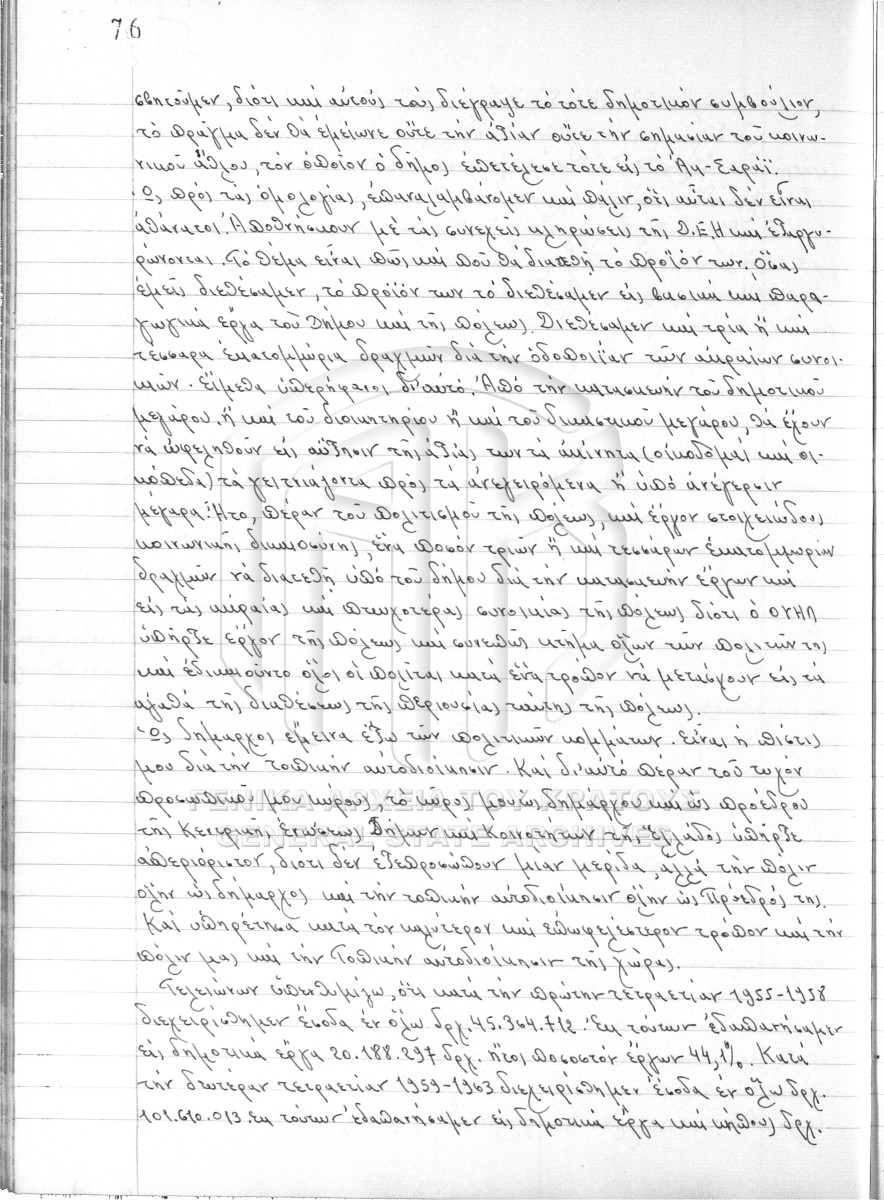 76
σβητοῦμεν, διότι καί αὐτούς τούς διέγραψε τό τότε δημοτικόν συμβούλιον,
τό πρᾶγμα δέν θά ἐμείωνε οὔτε τήν ἀξίαν οὔτε τήν σημασίαν τοῦ κοινω-
νικοῦ ἄθλου, τόν ὁποῖον ὁ δῆμος ἐπετέλεσε τότε εἰς τό Ἀκ-Σαράϊ.
Ὡς πρός τάς ὁμολογίας, ἐπαναλαμβάνομεν καί πάλιν, ὅτι αὗται δέν εἶναι
ἀθάνατοι. Ἀποθνήσκουν μέ τάς συνεχεῖς κληρώσεις τῆς Δ.Ε.Η καί ἐξαργυ-
ρώνονται. Τό θέμα εἶναι πῶς καί ποῦ θά διατεθῇ τό προϊόν των. Ὅσας
ἐμεῖς διεθέσαμεν, τό προϊόν των τό διεθέσαμεν εἰς βασικά καί παρα-
γωγικά ἔργα τοῦ Δήμου καί τῆς πόλεως. Διεθέσαμεν καί τρία ἤ καί
τέσσαρα ἑκατομμύρια δραγμῶν διά τήν ὁδοποιΐαν τῶν ἀκραίων συνοι-
κιῶν. Εἴμεθα ὑπερήφανοι δι' αὐτό. Ἀπό τήν κατασκευήν τοῦ δημοτικοῦ
μεγάρου, ἤ καί τοῦ διοικητηρίου ἤ καί τοῦ δικαστικοῦ μεγάρου, θά ἔχουν
νά ὠφεληθοῦν εἰς αὔξησιν τῆς ἀξίας των τά ἀκίνητα (οἰκοδομαί καί οἰ-
κόπεδα) τά γειτνιάζοντα πρός τά ἀνεγειρόμενα ἤ ὑπό ἀνέγερσιν
μέγαρα. Ἦτο, πέραν τοῦ πολιτισμοῦ τῆς πόλεως, καί ἔργον στοιχειώδους
κοινωνικῆς δικαιοσύνης, ἕνα ποσόν τριῶν ἤ καί τεσσάρων ἑκατομμυρίων
δραχμῶν νά διατεθῇ ὑπό τοῦ δήμου διά τήν κατασκευήν ἔργων καί
εἰς τάς ἀκραίας καί πτωχοτέρας συνοικίας τῆς πόλεως διότι ὁ ΟΥΗΛ
ὑπῆρξε ἔργον τῆς πόλεως καί συνεπῶς κτῆμα ὅλων τῶν πολιτῶν της
καί ἐδικαιοῦντο ὅλοι οἱ πολῖται κατά ἕνα τρόπον νά μετάσχουν εἰς τά
ἀγαθά τῆς διαθέσεως τῆς περιουσίας ταύτης τῆς πόλεως.
Ὡς δήμαρχος ἔμεινα ἔξω τῶν πολιτικῶν κομμάτων. Εἶναι ἡ πίστις
μου διά τήν τοπικήν αὐτοδιοίκησιν. Καί δι' αὐτό πέραν τοῦ τυχόν
προσωπικοῦ μου κύρους, τό κῦρος μου ὡς δημάρχου καί ὡς προέδρου
τῆς Κεντρικῆς Ἑνώσεως Δήμων καί Κοινοτήτων τῆς Ἑλλάδος ὑπῆρξε
ἀπεριόριστον, διότι δέν ἐξεπροσώπουν μίαν μερίδα, ἀλλά τήν πόλιν
ὅλην ὡς δήμαρχος καί τήν τοπικήν αὐτοδιοίκησιν ὅλην ὡς Πρόεδρός της.
Καί ὑπηρέτησα κατά τόν καλύτερον καί ἐπωφελέστερον τρόπον καί τήν
πόλιν μας καί τήν Τοπικήν αὐτοδιοίκησιν τῆς χώρας.
Τελειώνων ὑπενθυμίζω, ὅτι κατά τήν πρώτην τετραετίαν 1955-1958
διεχειρίσθημεν ἔσοδα ἐν ὅλῳ δρχ. 45.364.712. Ἐκ τούτων ἐδαπανήσαμεν
εἰς δημοτικά ἔργα 20.188.297 δρχ. ἤτοι ποσοστόν ἔργων 44,1%. Κατά
τήν δευτέραν τετραετίαν 1959-1963 διεχειρίσθημεν ἔσοδα ἐν ὅλῳ δρχ.
101.610.013. Ἐκ τούτων ἐδαπανήσαμεν εἰς δημοτικά ἔργα καί κήπους δρχ.
ΓΕΝΙΚΑ ΑΡΧΕΙΑ ΤΟΥ ΚΡΑΤΟΥΣ
GENERAL STATE ARCHIVES